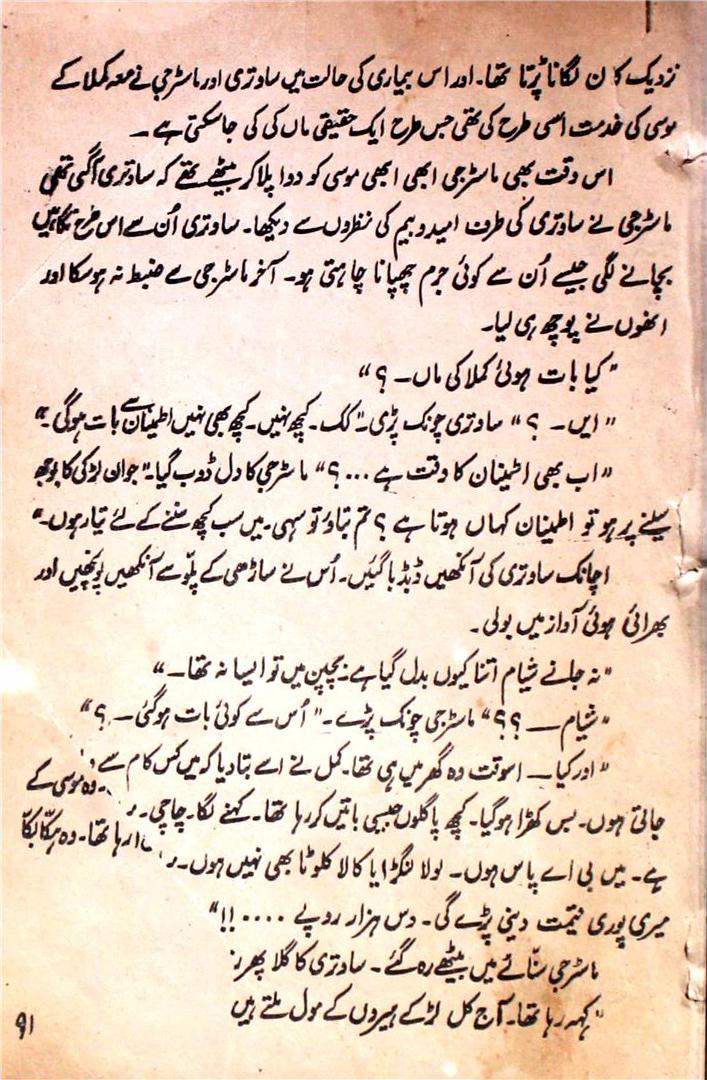 نزدیک کان لگانا پڑتا تھا۔ اور اس بیماری کی حالت میں ساوتری اور ماسٹر جی نے معہ کملا کے
موسی کی خدمت اسی طرح کی تھی جس طرح ایک حقیقی ماں کی کی جاسکتی ہے ۔
اس وقت بھی ماسٹر جی ابھی ابھی موسی کو دوا پلا کر بیٹھے تھے کہ ساوتری آگئی تھی
ماسٹر جی نے ساوتری کی طرف امید و بیم کی نظروں سے دیکھا۔ ساوتری اُن سے اس طرح نگاہیں
بچانے لگی جیسے اُن سے کوئی جرم چھپانا چاہتی ہو۔ آخر ماسٹر جی سے ضبط نہ ہوسکا اور
انھوں نے پوچھ ہی لیا۔
"کیا بات ہوئی کملا کی ماں۔ ؟"
"ایں۔ ؟" ساوتری چونک پڑی۔ "کک۔ کچھ نہیں۔ کچھ بھی نہیں اطمینان سے بات ہوگی۔"
"اب بھی اطمینان کا وقت ہے ...؟" ماسٹر جی کا دل ڈوب گیا۔ "جوان لڑکی کا بوجھ
سینے پر ہو تو اطمینان کہاں ہوتا ہے ؟ تم بتاؤ تو سہی۔ میں سب کچھ سننے کے لئے تیار ہوں۔"
اچانک ساوتری کی آنکھیں ڈبڈبا گئیں۔ اُس نے ساڑھی کے پلّو سے آنکھیں پونچھیں اور
بھرائی ہوئی آواز میں بولی۔
"نہ جانے شیام اتنا کیوں بدل گیا ہے۔ بچپن میں تو ایسا نہ تھا۔"
"شیام ــ ؟؟" ماسٹر جی چونک پڑے۔ "اُس سے کوئی بات ہوگئی۔ ؟"
"اور کیا ــ اسوقت وہ گھر میں ہی تھا۔ کمل نے اسے بتا دیا کہ میں کس کام سے
جاتی ہوں۔ بس کھڑا ہوگیا۔ کچھ پاگلوں جیسی باتیں کر رہا تھا۔ کہنے لگا۔ چاچی۔ ۔ وہ موسی کے
ہے۔ میں بی اے پاس ہوں۔ لولا لنگڑا یا کالا کلوٹا بھی نہیں ہوں۔ رہا تھا۔ وہ ہکّا بکّا
میری پوری قیمت دینی پڑے گی۔ دس ہزار روپے ....!!"
ماسٹر جی سنّاٹے میں بیٹھے رہ گئے۔ ساوتری کا گلا پھر
"کہہ رہا تھا۔ آج کل لڑکے ہیروں کے مول ملتے ہیں
۹۱